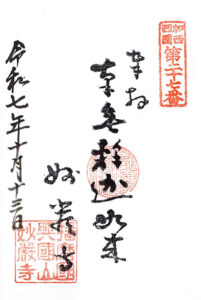 加西
西國
第二十七番
奉拝
本尊釈迦如来
妙嚴寺
令和七年十月十三日
興國山
妙嚴寺